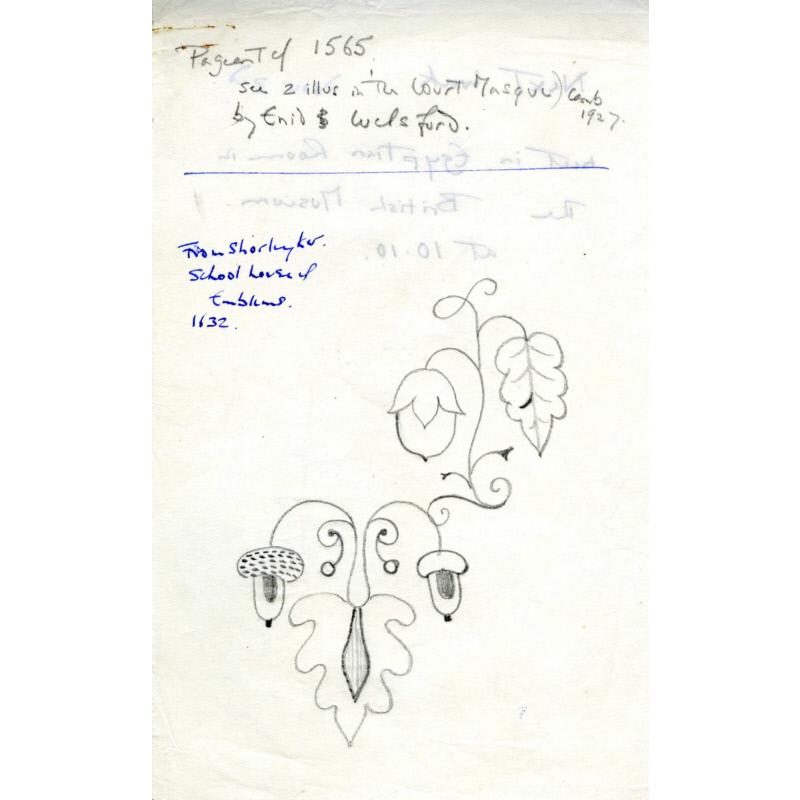 Pageant of 1565.
see 2 illus in 'The Court Masque' Camb
1927.
by Enid Welsford.
meet in Egyptian Room in
The British Museum.
at 10.10.
From Shorleyker.
School house of
Emblems.
1632.